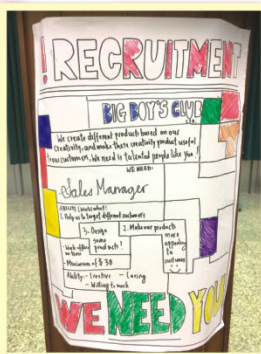 ! RECRUITMENT
BIG BOY'S CLUB
LTD.
We create different products based on our
creativity, and make these creativity product useful
to our customers. We need is talented people like you!
WE NEED:
Sales Manager
1. Help us to target different customers
2. Make our products
more
appealing
to
customers
3. Design
some
products!
- Work often
on time
- Minimum of $30
Ability: - Creative - Caring
- Willing to work
WE NEED YOU